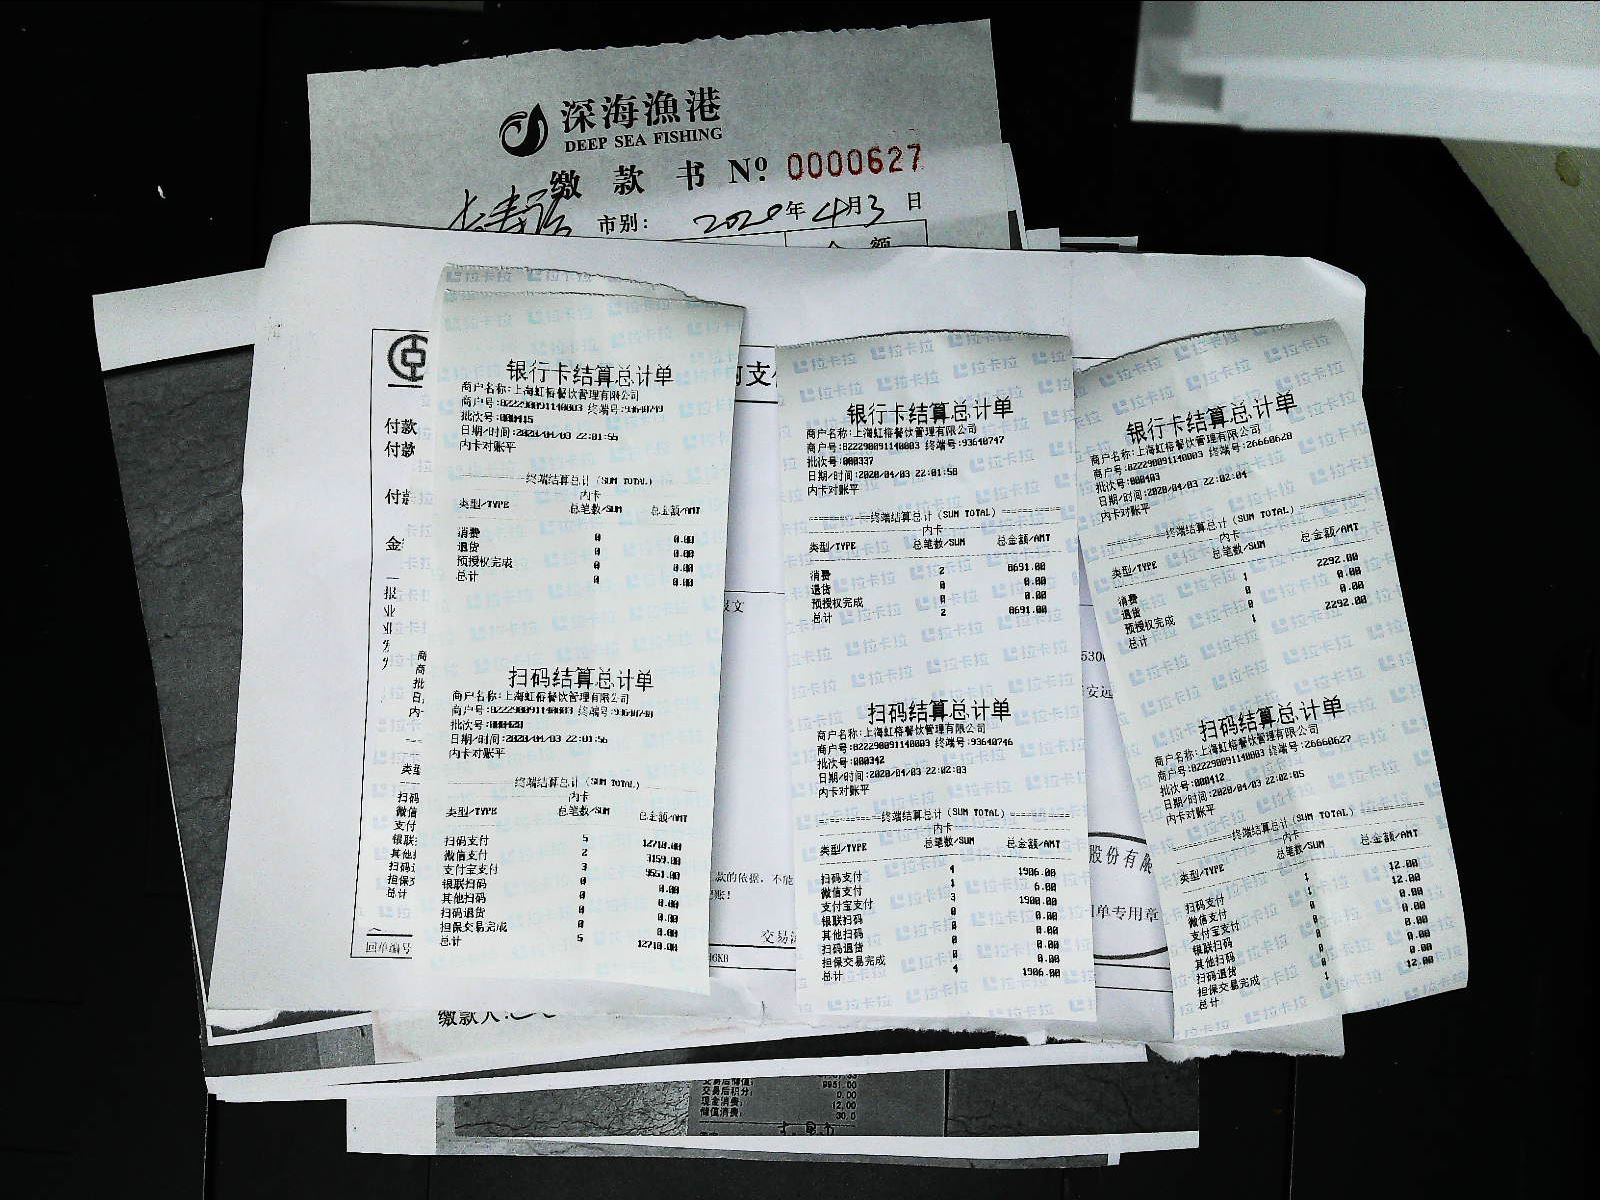 深海漁港
DEEP SEA FISHING
缴 款 书 Nº 0000627
市别: 2020年4月3日
金 额
银行卡结算总计单
商户名称:上海虹榕餐饮管理有限公司
商户号:82229009114D003 终端号:93640749
批次号:000415
日期/时间:2020/04/03 22:01:55
内卡对账平
终端结算总计(SUM TOTAL)
内卡
类型/TYPE 总笔数/SUM 总金额/AMT
消费 0 0.00
退货 0 0.00
预授权完成 0 0.00
总计 0 0.00
扫码结算总计单
商户名称:上海虹榕餐饮管理有限公司
批次号:000420
日期/时间:2020/04/03 22:01:56
内卡对账平
终端结算总计(SUM TOTAL)
内卡
类型/TYPE 总笔数/SUM 总金额/AMT
扫码支付 5 12710.00
微信支付 2 3159.00
支付宝支付 3 9551.00
银联扫码 0 0.00
其他扫码 0 0.00
扫码退货 0 0.00
担保交易完成 0 0.00
总计 5 12710.00
银行卡结算总计单
商户名称:上海虹榕餐饮管理有限公司
商户号:82229009114D003 终端号:93640747
批次号:000337
日期/时间:2020/04/03 22:01:58
内卡对账平
终端结算总计(SUM TOTAL)
内卡
类型/TYPE 总笔数/SUM 总金额/AMT
消费 2 8691.00
退货 0 0.00
预授权完成 0 0.00
总计 2 8691.00
扫码结算总计单
商户名称:上海虹榕餐饮管理有限公司
商户号:82229009114D003 终端号:93640746
批次号:000342
日期/时间:2020/04/03 22:02:03
内卡对账平
终端结算总计(SUM TOTAL)
内卡
类型/TYPE 总笔数/SUM 总金额/AMT
扫码支付 4 1906.00
微信支付 1 6.00
支付宝支付 3 1900.00
银联扫码 0 0.00
其他扫码 0 0.00
扫码退货 0 0.00
担保交易完成 0 0.00
总计 4 1906.00
银行卡结算总计单
商户名称:上海虹榕餐饮管理有限公司
商户号:82229009114D003 终端号:26660628
批次号:000403
日期/时间:2020/04/03 22:02:04
内卡对账平
终端结算总计(SUM TOTAL)
内卡
类型/TYPE 总笔数/SUM 总金额/AMT
消费 1 2292.00
退货 0 0.00
预授权完成 0 0.00
总计 1 2292.00
扫码结算总计单
商户名称:上海虹榕餐饮管理有限公司
商户号:82229009114D003 终端号:26660627
批次号:000412
日期/时间:2020/04/03 22:02:05
内卡对账平
终端结算总计(SUM TOTAL)
内卡
类型/TYPE 总笔数/SUM 总金额/AMT
扫码支付 1 12.00
微信支付 1 12.00
支付宝支付 0 0.00
银联扫码 0 0.00
其他扫码 0 0.00
扫码退货 0 0.00
担保交易完成 0 0.00
总计 1 12.00
付款
付款
股份有限
单专用章
款的依据,不能
回单编号
缴款人:
交易后储值: 9951.00
交易后积分: 0.00
现金消费: 12.00
储值消费: 30.0